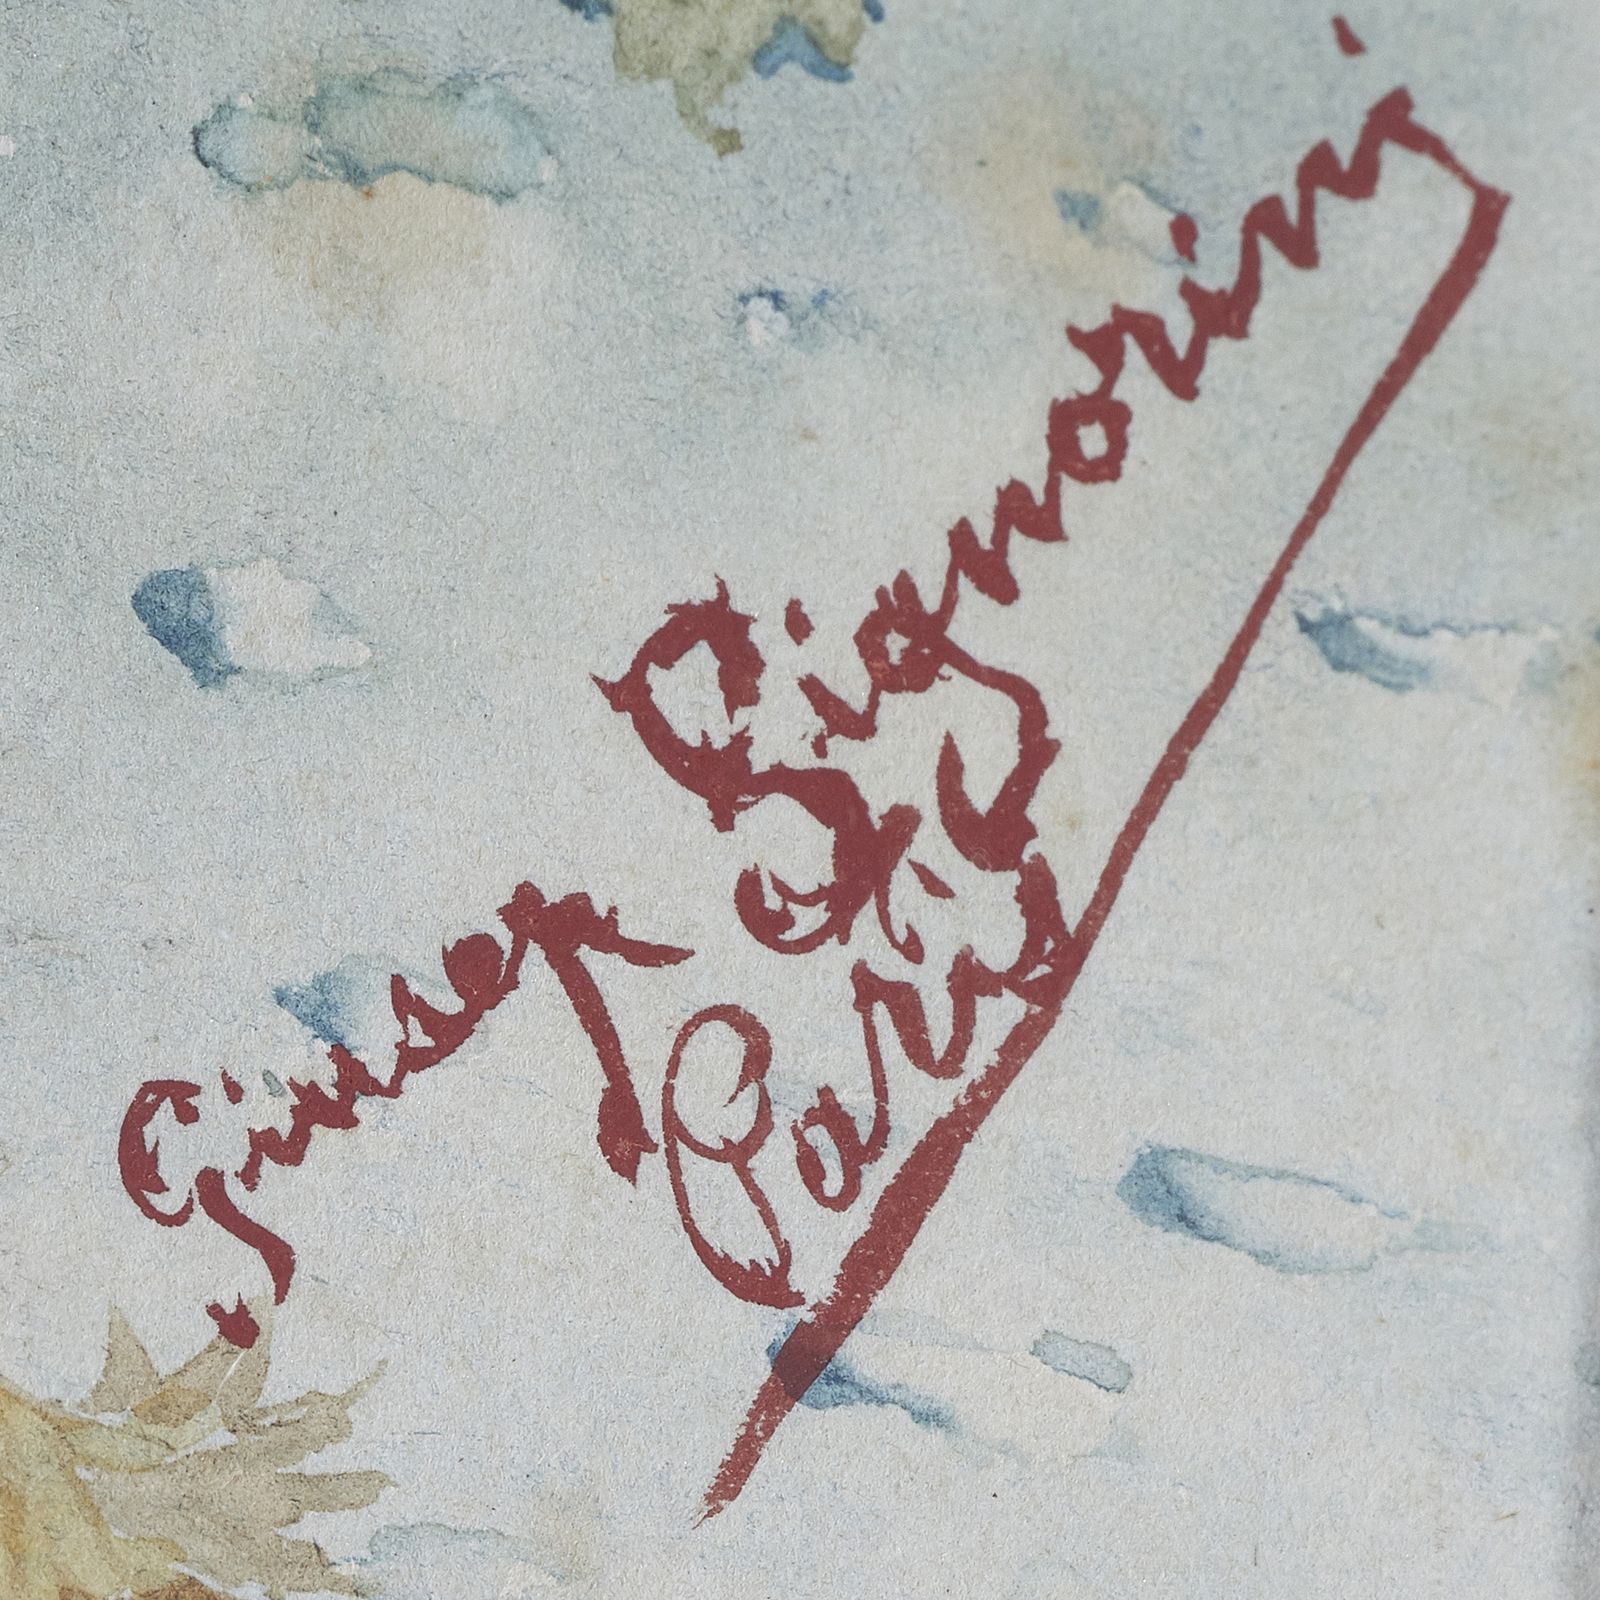 Giusep Signorini
Paris